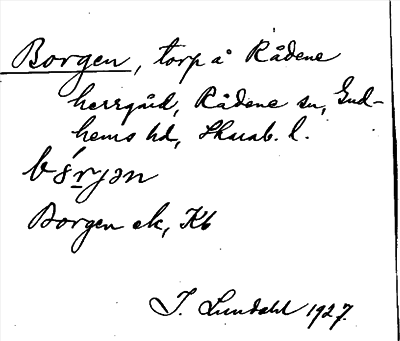 Borgen, torp å Rådene
herrgård, Rådene sn, Gud-
hems hd, Skarab. l.
bórjən
Borgen ek, Kb
I. Lundahl 1927.